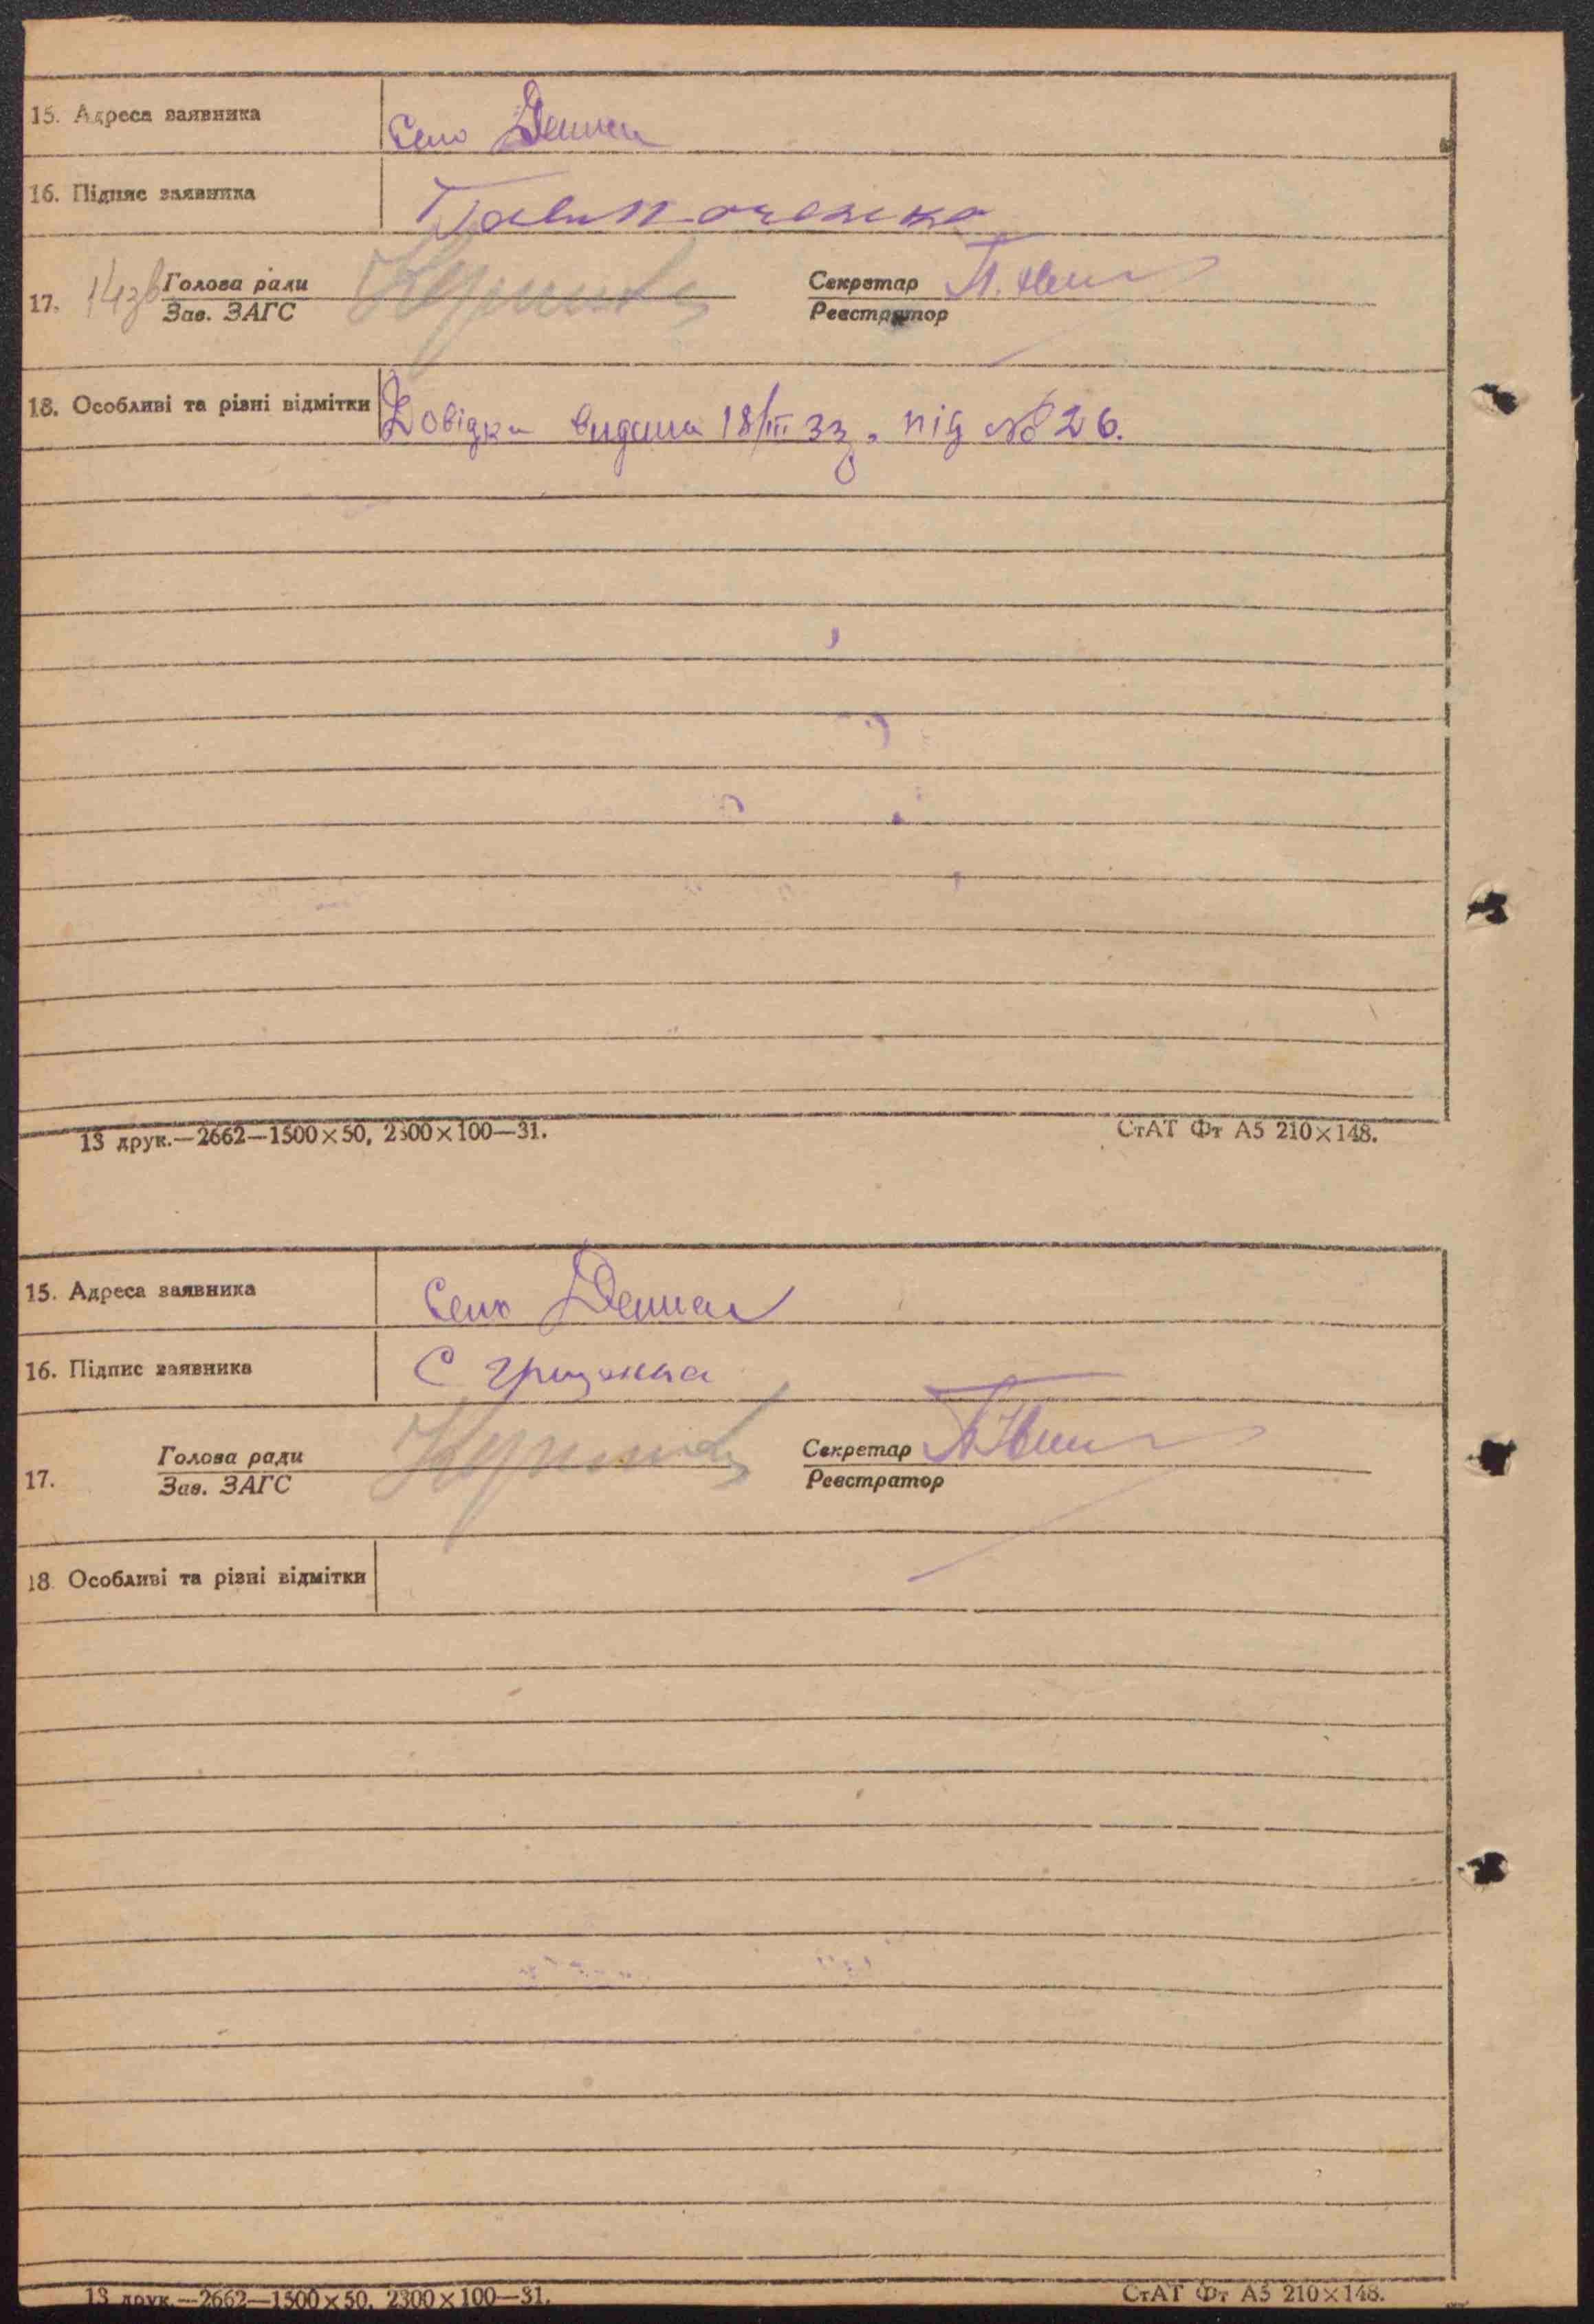 15. Адреса заявника Село Демки
16. Підпис заявника
17. Голова ради Секретар
Зав. ЗАГС Реєстратор
18. Особливі та різні відмітки Довідка видана 18/III 33 під № 26.
13 друк.—2662—1500×50, 2300×100—31. СтАТ Фт А5 210×148.
15. Адреса заявника Село Демки
16. Підпис заявника С Грищенка
17. Голова ради Секретар
Зав. ЗАГС Реєстратор
18. Особливі та різні відмітки
13 друк.—2662—1500×50, 2300×100—31. СтАТ Фт А5 210×148.